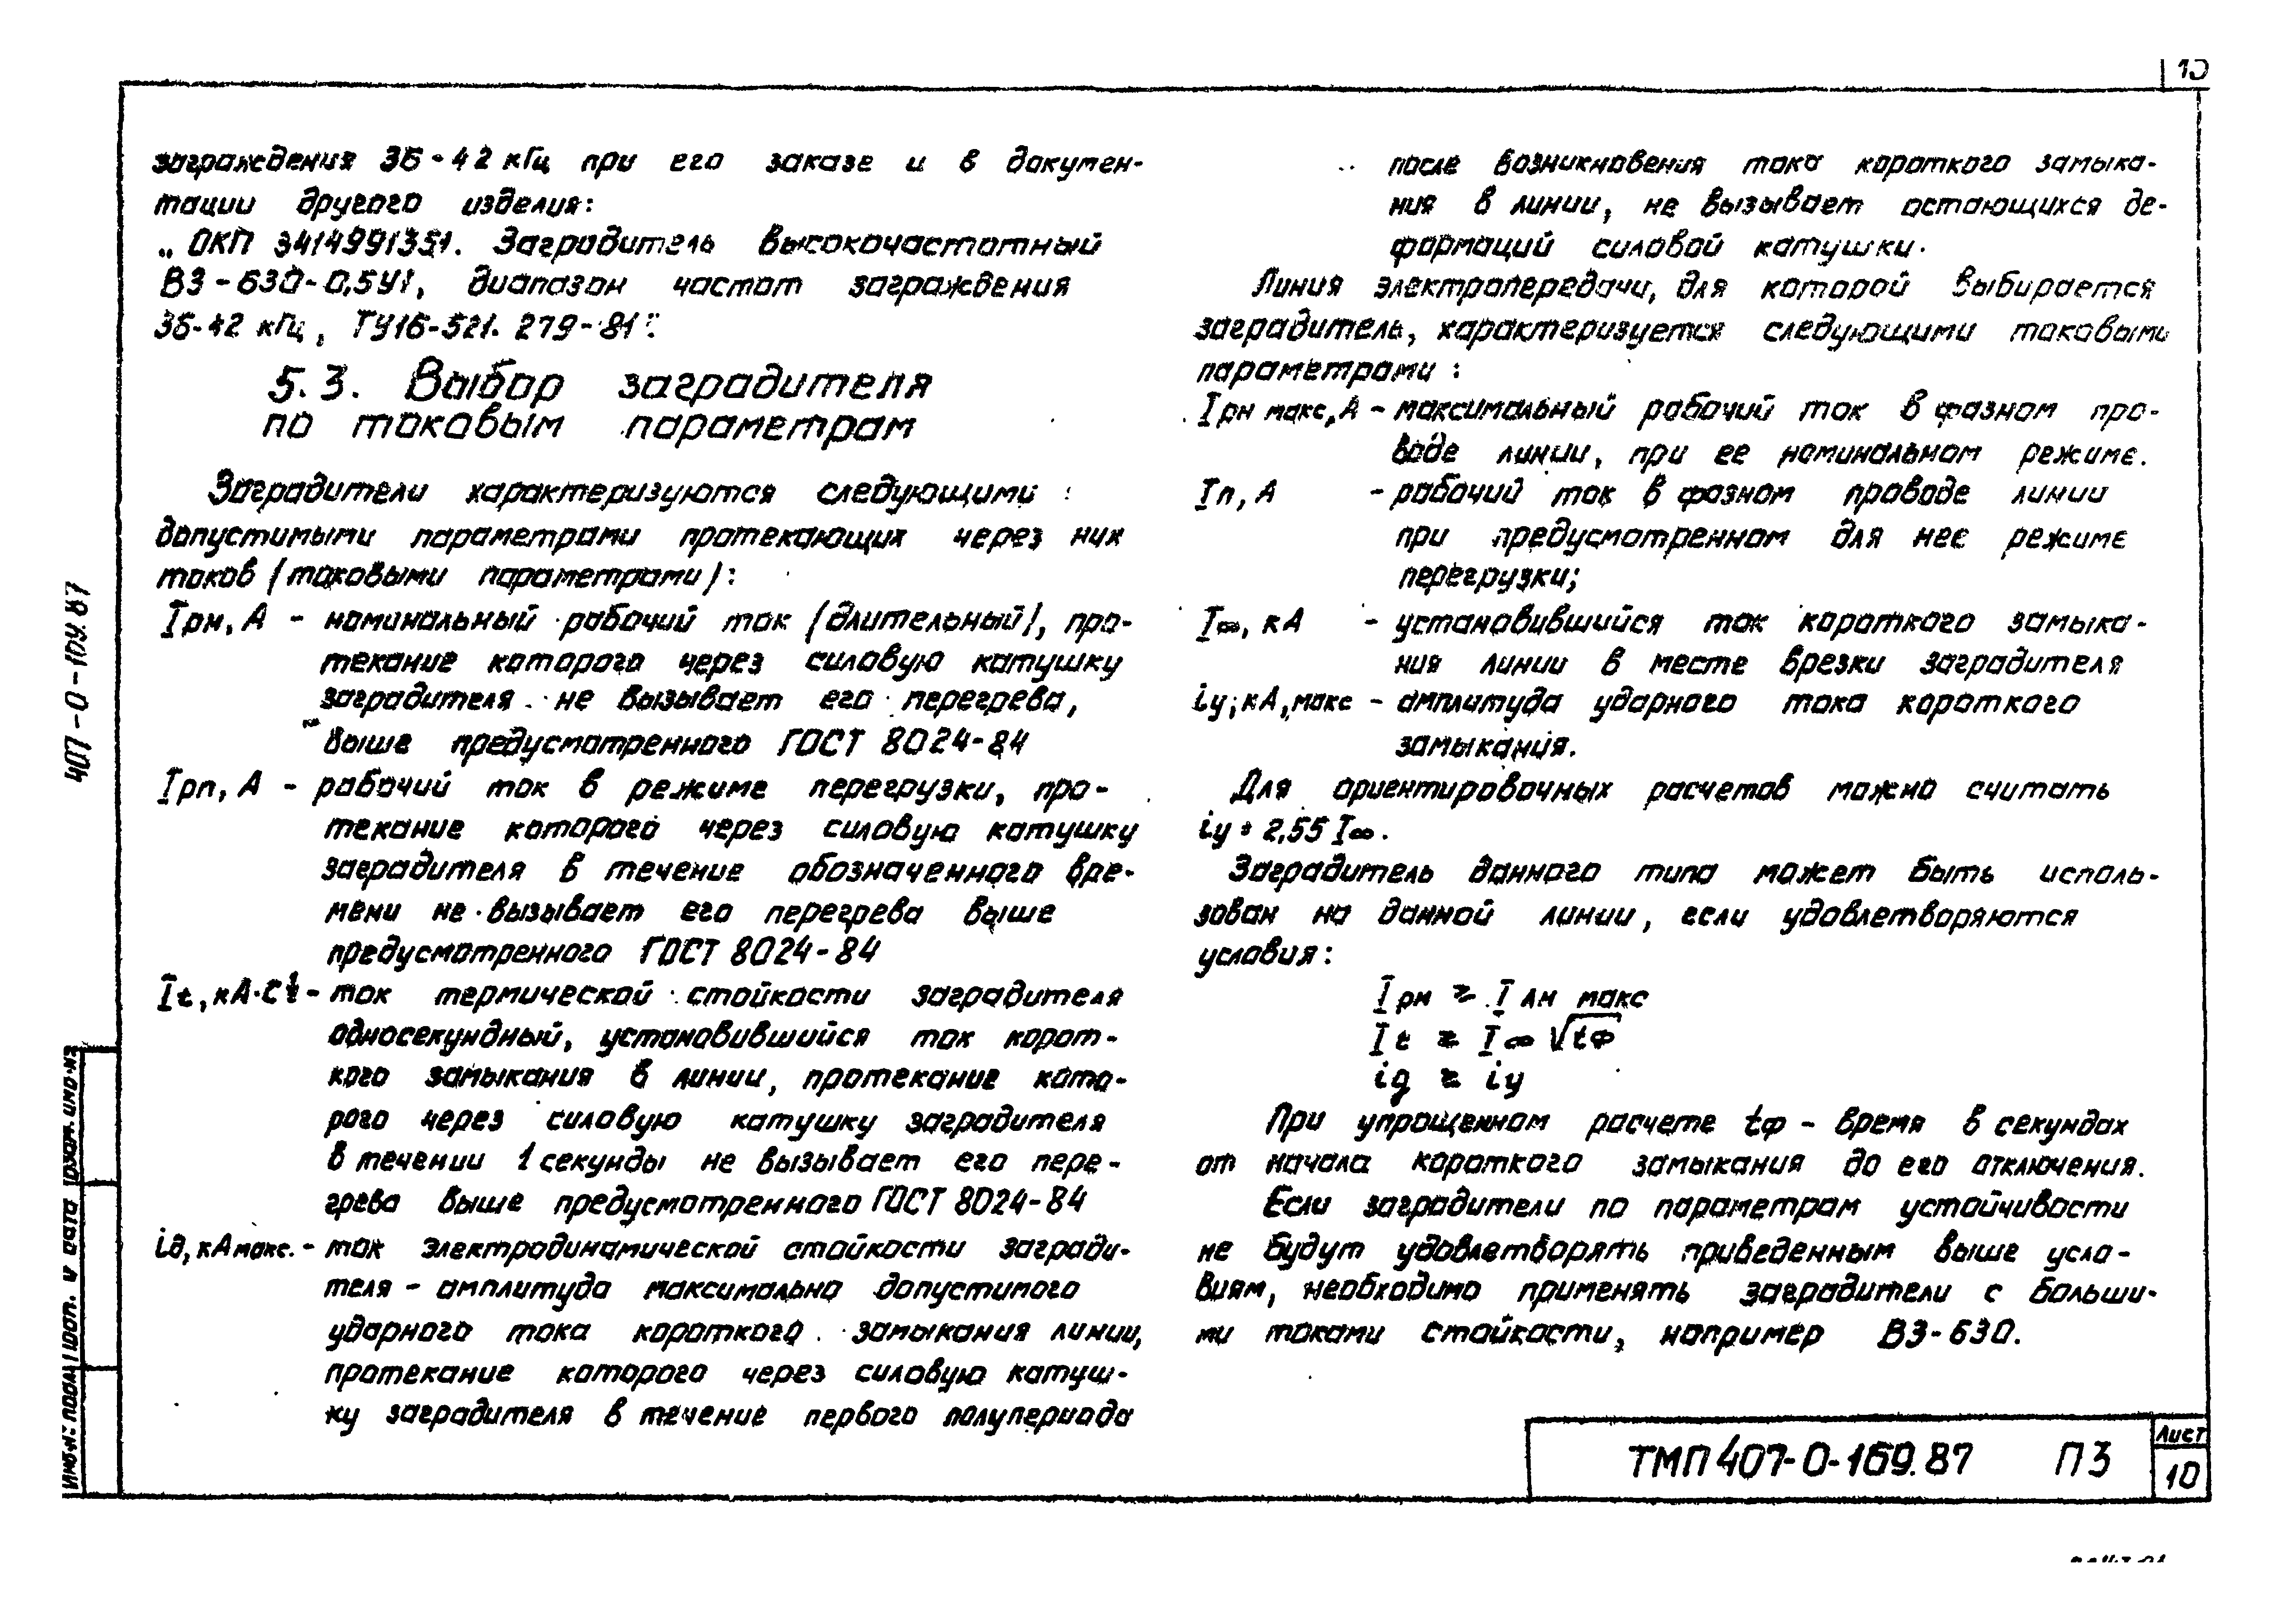 10
заграждения 36-42 кГц при его заказе и в докумен-
тации другого изделия:
„ ОКП 3414991351. Заградитель высокочастотный
ВЗ-630-0,5У1, диапазон частот заграждения
36-42 кГц, ТУ16-521.279-81".
5.3. Выбор заградителя
по токовым параметрам
Заградители характеризуются следующими
допустимыми параметрами протекающих через них
токов (токовыми параметрами):
Iрн, А - номинальный рабочий ток (длительный), про-
текание которого через силовую катушку
заградителя не вызывает его перегрева,
выше предусмотренного ГОСТ 8024-84
Iрп, А - рабочий ток в режиме перегрузки, про-
текание которого через силовую катушку
заградителя в течение обозначенного вре-
мени не вызывает его перегрева выше
предусмотренного ГОСТ 8024-84
It, кА·с½ - ток термической стойкости заградителя
односекундный, установившийся ток корот-
кого замыкания в линии, протекание кото-
рого через силовую катушку заградителя
в течении 1 секунды не вызывает его пере-
грева выше предусмотренного ГОСТ 8024-84
iд, кА макс. - ток электродинамической стойкости загради-
теля - амплитуда максимально допустимого
ударного тока короткого замыкания линии,
протекание которого через силовую катуш-
ку заградителя в течение первого полупериода
после возникновения тока короткого замыка-
ния в линии, не вызывает остающихся де-
формаций силовой катушки.
Линия электропередачи, для которой выбирается
заградитель, характеризуется следующими токовыми
параметрами:
Iрн макс, А - максимальный рабочий ток в фазном про-
воде линии, при ее номинальном режиме.
Iп, А - рабочий ток в фазном проводе линии
при предусмотренном для нее режиме
перегрузки;
I∞, кА - установившийся ток короткого замыка-
ния линии в месте врезки заградителя
iу; кА, макс - амплитуда ударного тока короткого
замыкания.
Для ориентировочных расчетов можно считать
iу = 2,55 I∞.
Заградитель данного типа может быть исполь-
зован на данной линии, если удовлетворяются
условия:
Iрн ≥ Iлн макс
It ≥ I∞ √tф
iд ≥ iу
При упрощенном расчете tф - время в секундах
от начала короткого замыкания до его отключения.
Если заградители по параметрам устойчивости
не будут удовлетворять приведенным выше усло-
виям, необходимо применять заградители с больши-
ми токами стойкости, например ВЗ-630.
407-0-169.87
Инв.№ подл. Подп. и дата Взам. инв.№
ТМП 407-0-169.87 ПЗ
Лист
10